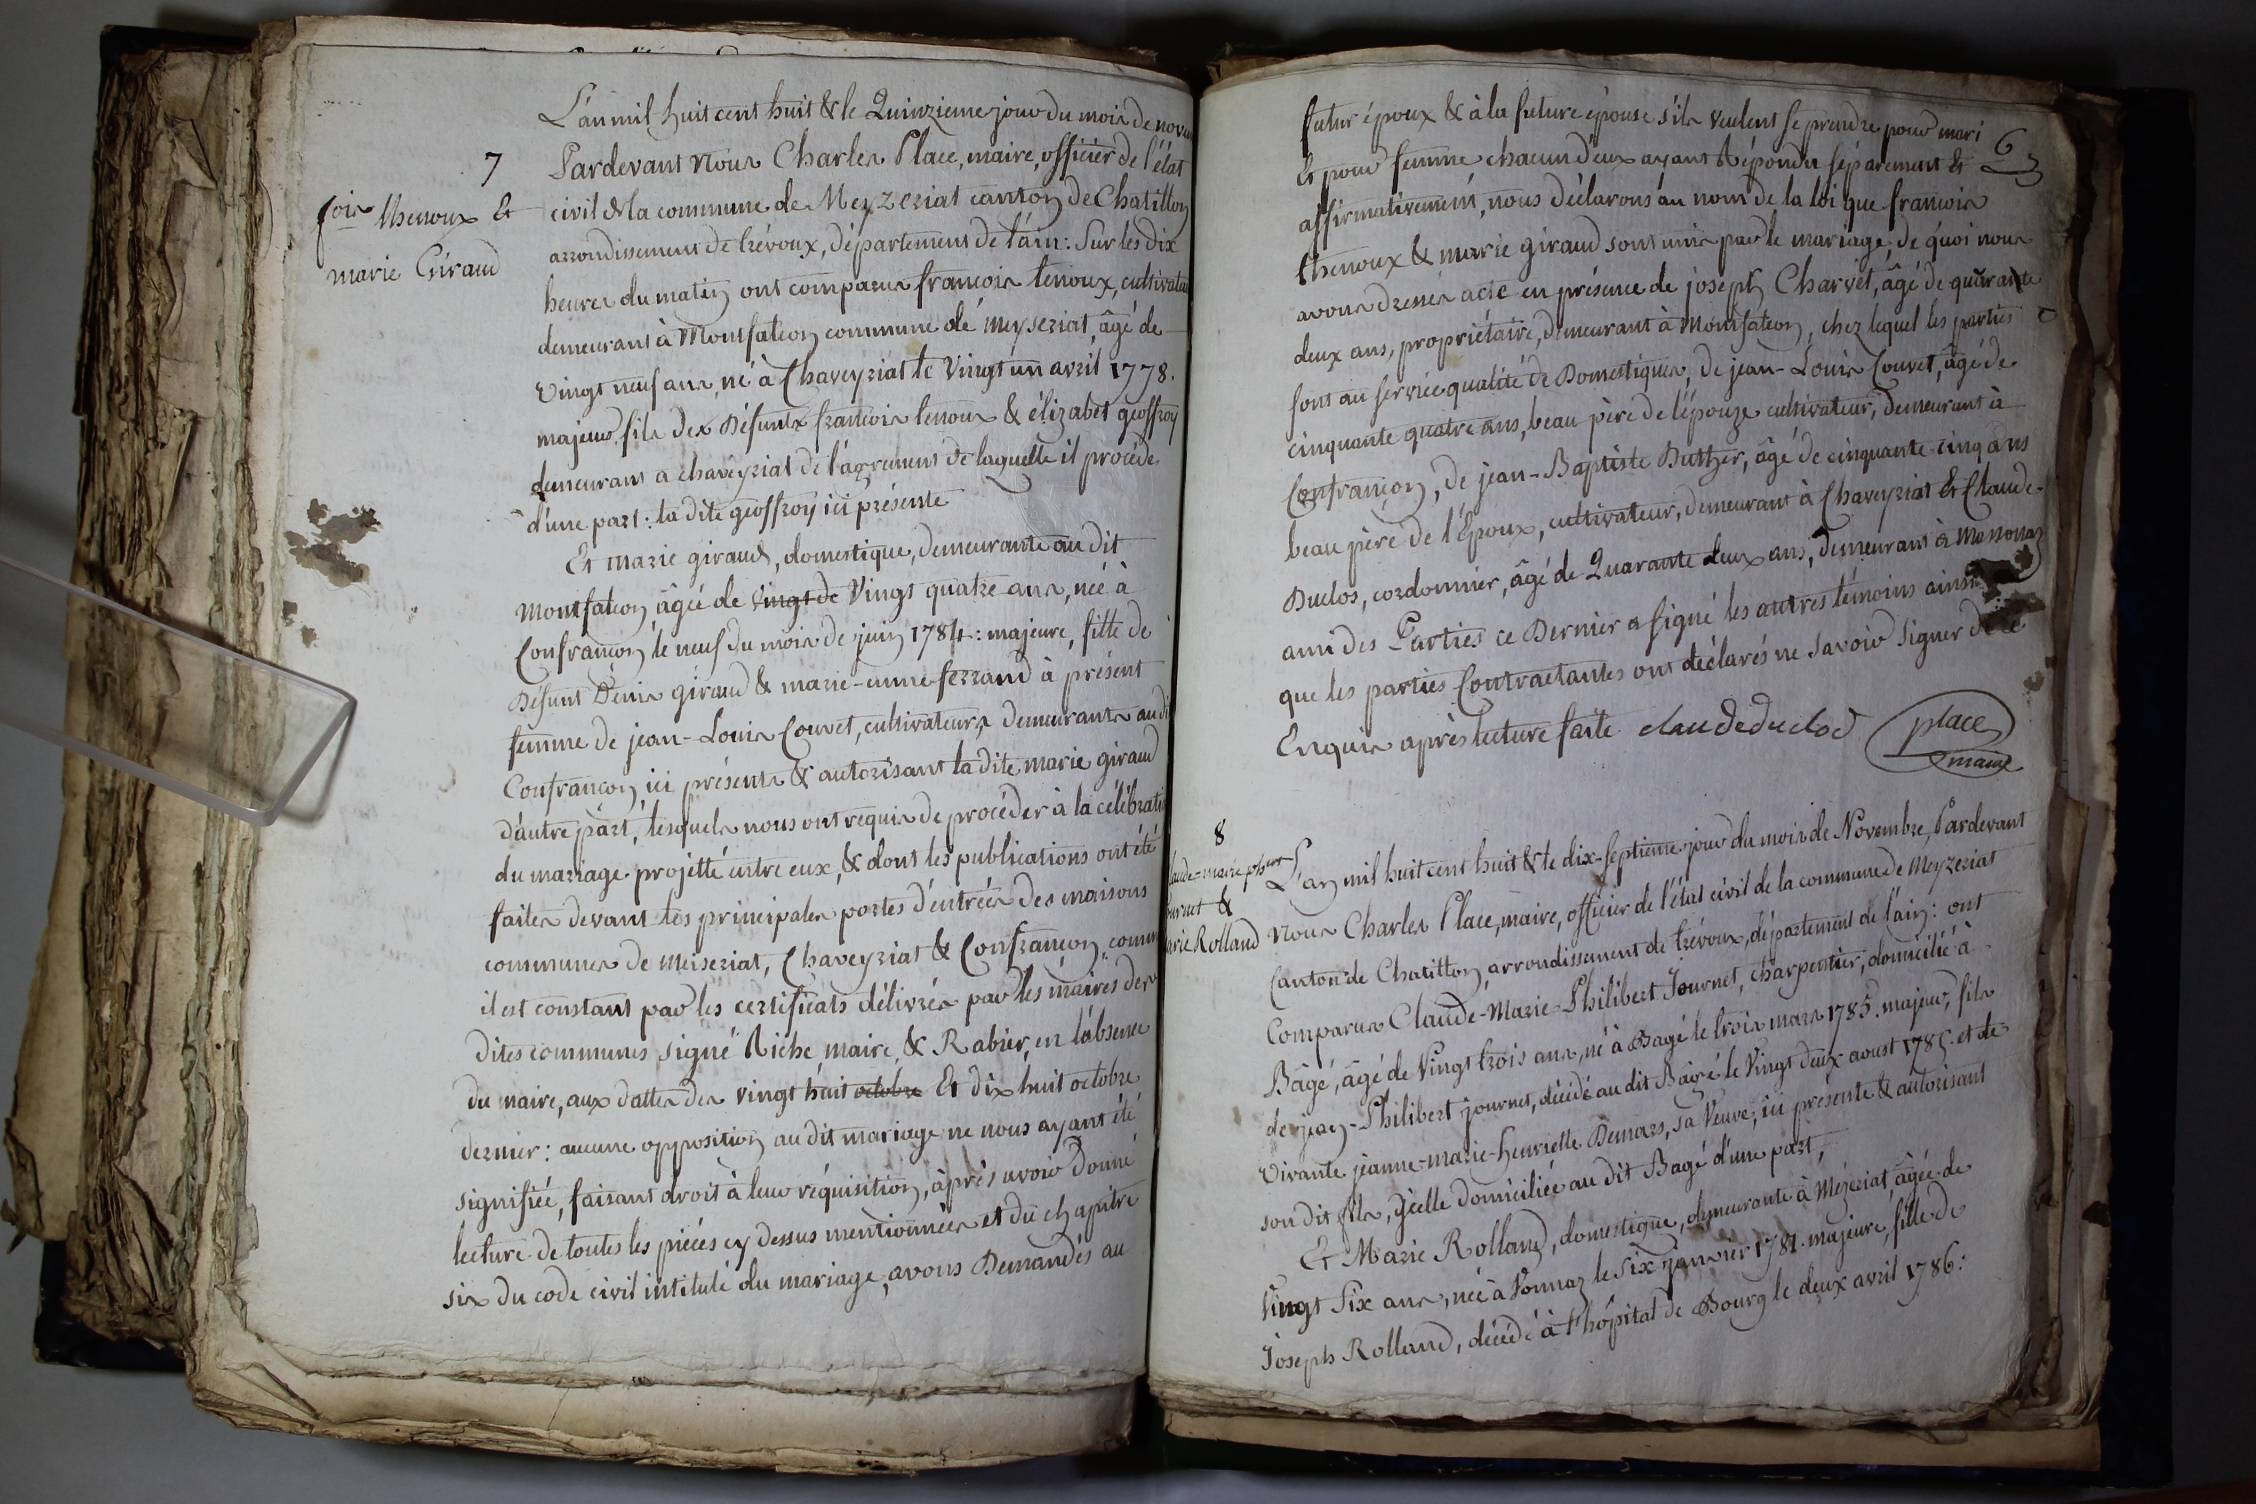 7
fois thenoux Et
marie Giraud
L'an mil huit cent huit & le Quinzieme jour du mois de nov
Pardevant Nous Charles Place, maire, officier de l'état
civil de la commune de Meyzeriat canton de Chatillon
arrondissement de trévoux, département de l'ain: Sur les dix
heures du matin ont comparus francois tenoux, cultivateu
demeurant à Montfalcon commune de meyseriat, âgé de
Vingt neuf ans, né à Chaveyriat le Vingt un avril 1778.
majeur, fils des Défunts francois tenoux & élizabet geoffroy
demeurant a chaveyriat de l'agrement de laquelle il procéde
d'une part: la dite geoffroy ici présente
Et marie giraud, domestique, demeurante au dit
Montfalcon, âgée de Vingt de Vingt quatre ans, née à
Confrançon le neuf du mois de juin 1784: majeure, fille de
Défunt Denis giraud & marie-anne ferrand à présent
femme de jean-Louis Couvet, cultivateurs demeurants au di
Confrançon ici présents & autorisant la dite marie giraud
d'autre part, lesquels nous ont requis de procéder à la célébrati
du mariage projetté entre eux, & dont les publications ont été
faites devant les principales portes d'entrées des maisons
communes de Meiseriat, Chaveyriat & Confrançon, comm
il est constant par les certificats délivrés par les maires des
dites communes signé Riche maire & Rabier, en l'absence
du maire, aux dattes des vingt huit octobre Et dix huit octobre
dernier: aucune opposition au dit mariage ne nous ayant été
signifiée, faisant droit à leur réquisition, après avoir Donné
lecture de toutes les pièces cy dessus mentionnées et du chapitre
six du code civil intitulé du mariage, avons Demandés au
futur époux & à la future épouse s'ils veulent se prendre pour mari
Et pour femme chacun d'eux ayant Répondu séparement Et
63
affirmativement, nous déclarons au nom de la loi que francois
thenoux & marie giraud sont unis par le mariage, de quoi nous
avons dressés acte en présence de joseph Charvet, âgé de quarante
deux ans, propriétaire, demeurant à Montfalcon, chez lequel les parties
sont au service qualité de Domestiques, de jean-Louis Couvet, âgé de
cinquante quatre ans, beau père de l'épouze cultivateur, demeurant à
Confrançon, de jean-Baptiste Buthzer, âgé de cinquante-cinq ans
beau père de l'Epoux, cultivateur, demeurant à Chaveyriat Et Claude-
Duclos, cordonnier, âgé de Quarante deux ans, demeurant à
ami des Parties ce Dernier a signé les autres témoins ainsi
que les parties Contractantes ont déclarés ne savoir signer de ce
Enquis après lecture faite claudeduclos place
maire
8
laude-marie ph
ournet &
arie Rolland
L'an mil huit cent huit & le dix-septieme jour du mois de Novembre, Pardevant
Nous Charles Place, maire, officier de l'état civil de la commune de Meyzeriat
Canton de Chatillon, arrondissement de trévoux, département de l'ain: ont
Comparus Claude-Marie-Philibert Journet, charpentier, domicilié à
Bâgé, âgé de Vingt trois ans, né à Bagé le trois mars 1785. majeur, fils
de jean-Philibert journet, décédé au dit Bâgé le Vingt deux aoust 1785. et de
Vivante jeanne-marie-henriette Demars, sa Veuve, ici présente & autorisant
son dit fils, ycelle domiciliée au dit Bagé d'une part,
Et Marie Rolland, domestique, demeurante à Mézeriat, âgée de
Vingt Six ans, née à Vonnaz le six janvier 1781. majeure, fille de
Joseph Rolland, décédé à l'hôpital de Bourg le deux avril 1786: